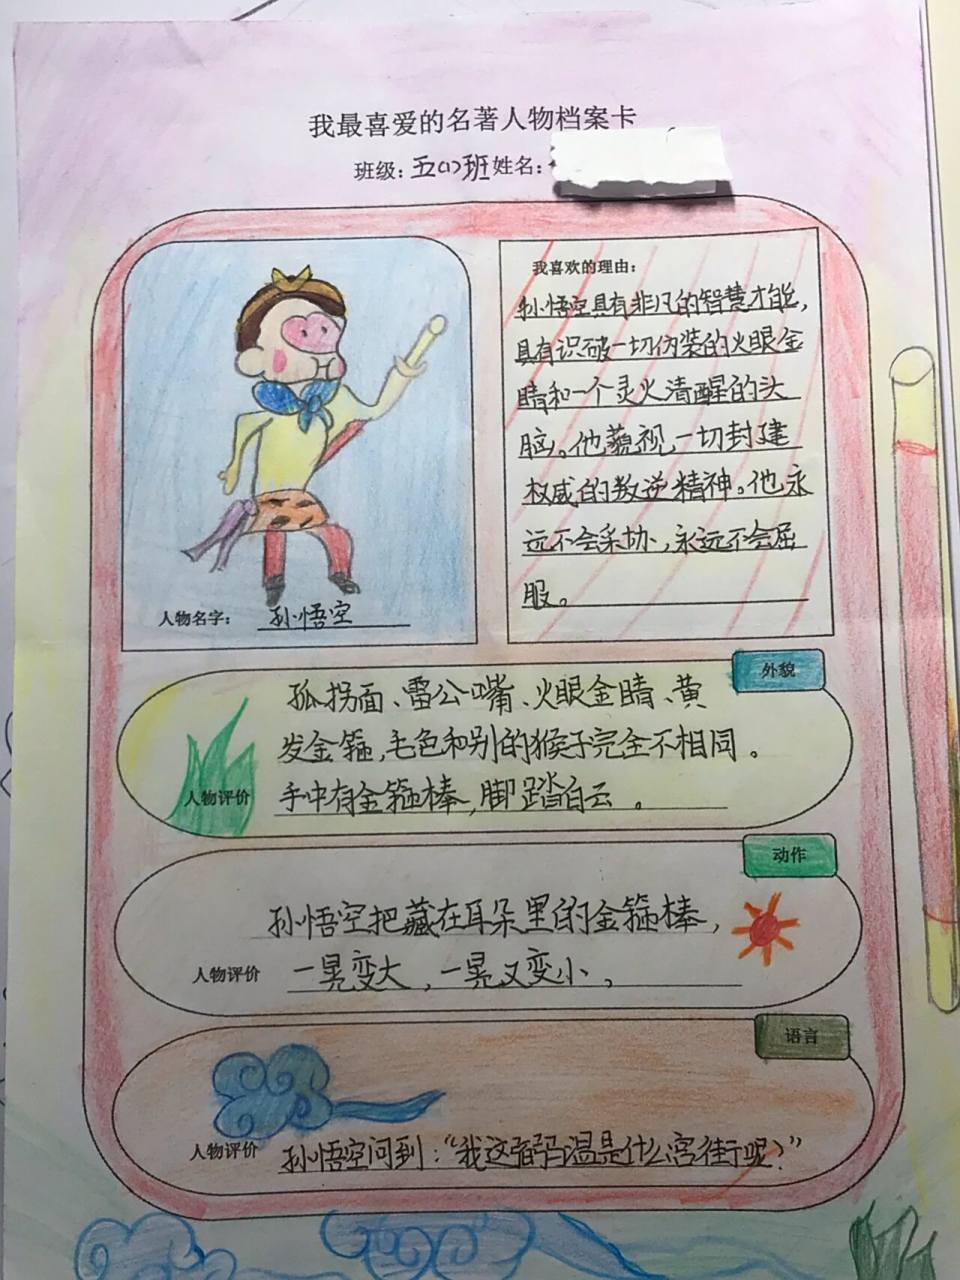 我最喜爱的名著人物档案卡
班级：五(1)班 姓名：
我喜欢的理由：
孙悟空具有非凡的智慧才能，
具有识破一切伪装的火眼金
睛和一个灵火清醒的头
脑。他藐视一切封建
权威的叛逆精神。他永
远不会采协，永远不会屈
服。
人物名字：孙悟空
外貌
孤拐面、雷公嘴、火眼金睛、黄
发金箍，毛色和别的猴子完全不相同。
人物评价 手中有金箍棒，脚踏白云。
动作
孙悟空把藏在耳朵里的金箍棒，
人物评价 一晃变大，一晃又变小，
语言
人物评价 孙悟空问到：“我这弼马温是什么官街呢？”